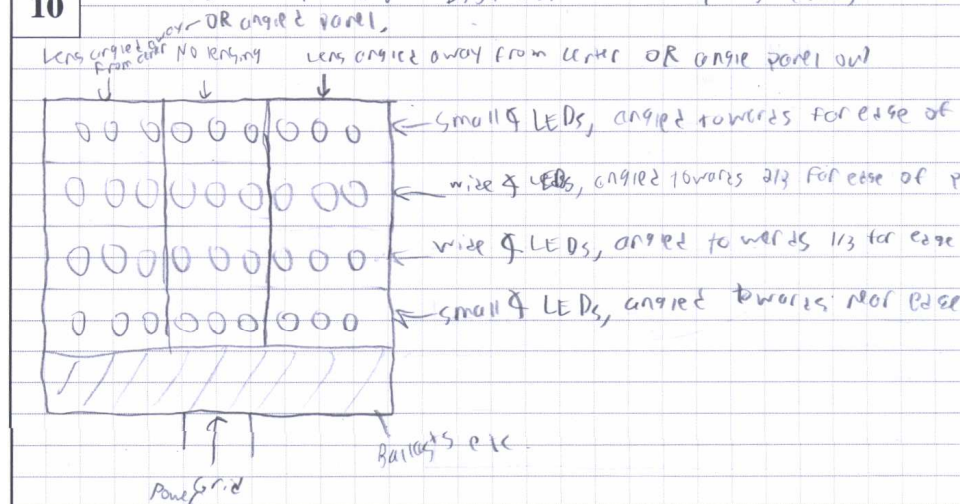 10
OR angled panel,
Lens angled away
from center
No lensing
Lens angled away from center OR angle panel out
small ∢ LEDs, angled towards far edge of
wide ∢ LEDs, angled towards 2/3 far edge of p
wide ∢ LEDs, angled towards 1/3 far edge
small ∢ LEDs, angled towards near edge
Ballasts etc.
Power Grid